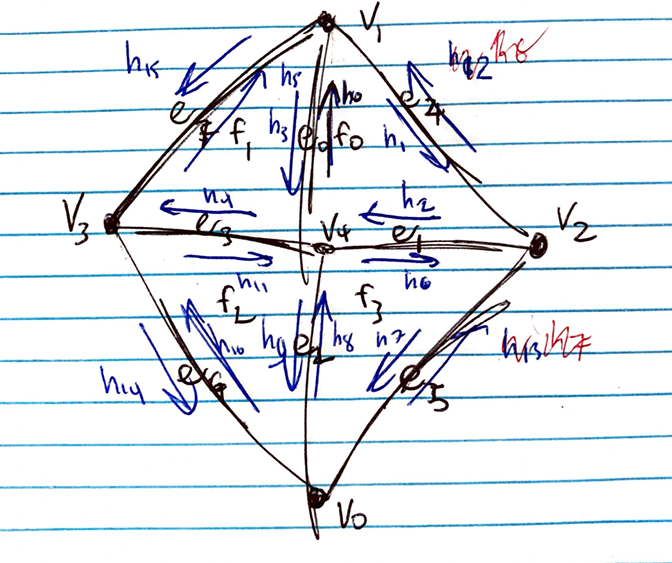 V1
h15
h12
h5
h0
e4
e7
f1
h3
e0
f0
h1
V3
h4
h2
V2
e3
V4
e1
h11
h6
f2
f3
h10
h9
e2
h8
h7
h13
h14
e6
e5
V0